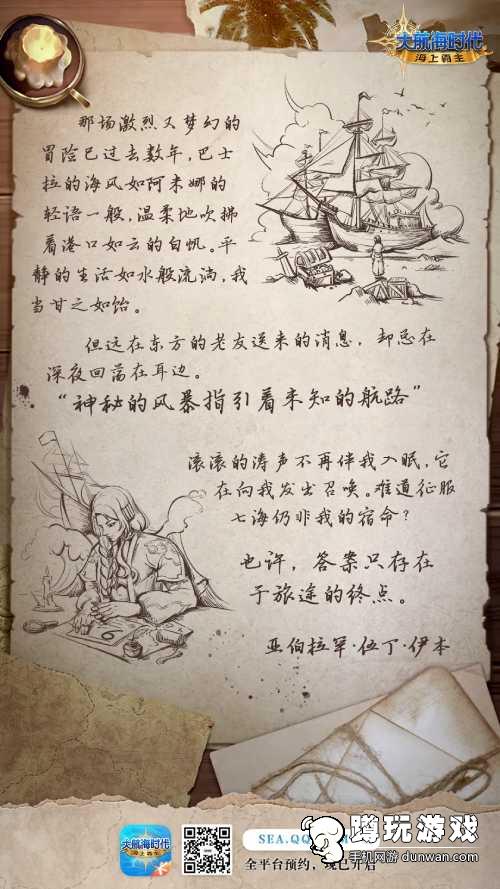 大航海时代
海上霸主
那场激烈又梦幻的
冒险已过去数年,巴士
拉的海风如阿米娜的
轻语一般,温柔地吹拂
着港口如云的白帆。平
静的生活如水般流淌,我
当甘之如饴。
但远在东方的老友送来的消息,却总在
深夜回荡在耳边。
“神秘的风暴指引着未知的航路”
滚滚的涛声不再伴我入眠,它
在向我发出召唤。难道征服
七海仍非我的宿命?
也许,答案只存在
于旅途的终点。
亚伯拉罕·伍丁·伊本
大航海时代
海上霸主
SEA.QQ
全平台预约,现已开启
蹲玩游戏
手机网游 dunwan.com